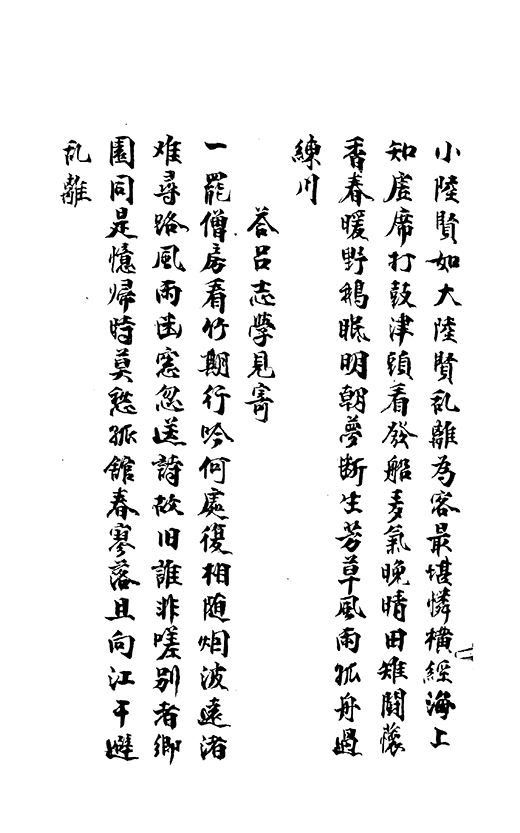 小陸賢如大陸賢乱離為客最堪憐橫經海上
知虛席打鼓津頭看發船麦氣晚晴田雉鬪懷
香春暖野鵝眠明朝夢斷生芳草風雨孤舟過
練川
荅呂志學見寄
一罷僧房看竹期行吟何處復相随烟波遠渚
难尋路風雨幽窓忽送詩故旧誰非嗟别者鄉
園同是憶歸時莫愁孤館春寥落且向江干避
乱離